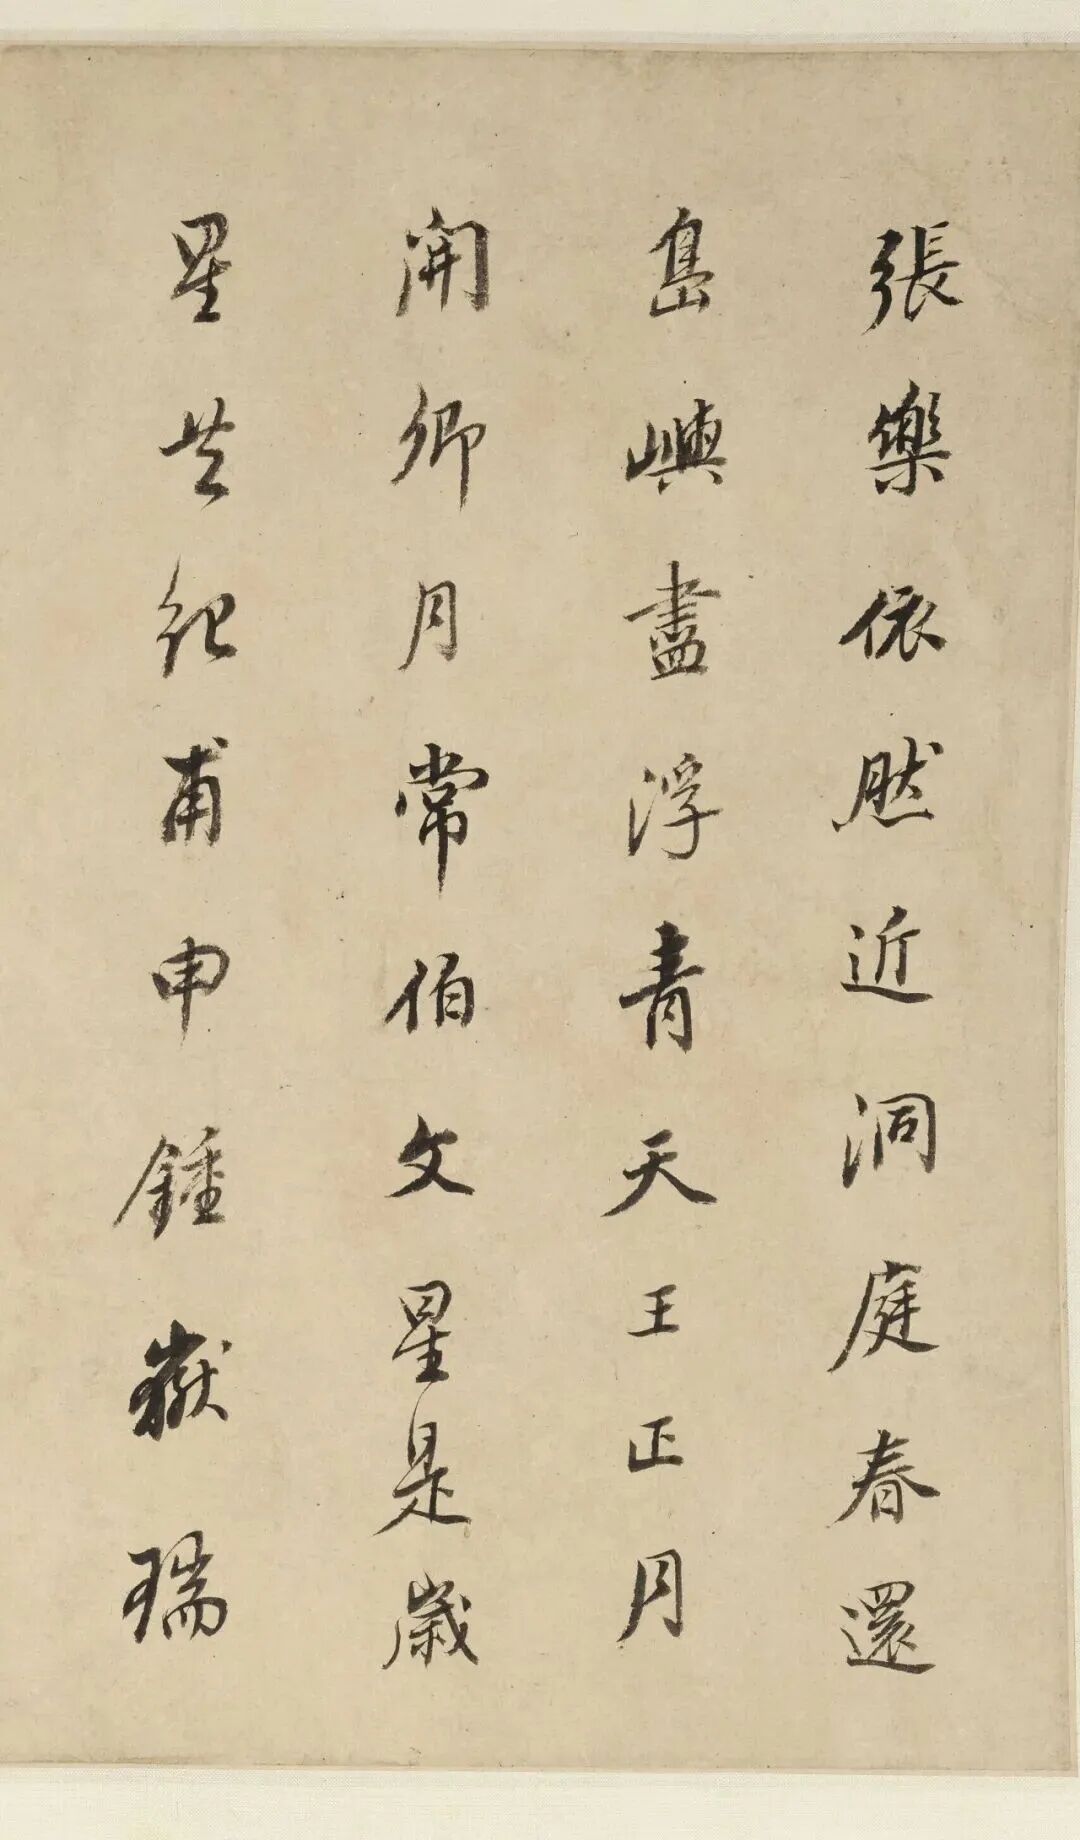 張樂依然近洞庭春還
島嶼盡浮青天王正月
開卿月常伯文星是歲
星共紀甫申鍾嶽瑞